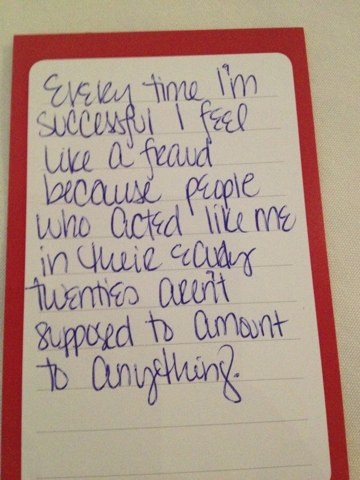 Every time I'm
successful I feel
like a fraud
because people
who acted like me
in their early
twenties aren't
supposed to amount
to anything.